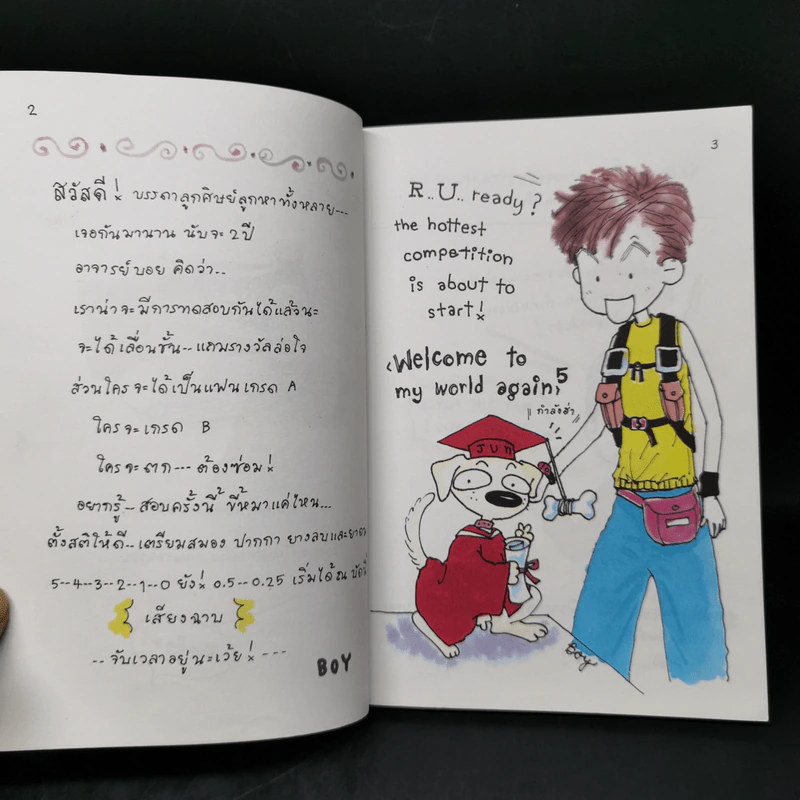 2
สวัสดี! บรรดาลูกศิษย์ลูกหาทั้งหลาย---
เจอกันมานาน นับจะ 2 ปี
อาจารย์บอย คิดว่า..
เราน่าจะมีการทดสอบกันได้แล้วนะ
จะได้เลื่อนชั้น-- แถมรางวัลล่อใจ
ส่วนใครจะได้เป็นแฟนเกรด A
ใครจะเกรด B
ใครจะตก--- ต้องซ่อม!
อยากรู้-- สอบครั้งนี้ ขี้หมาแค่ไหน...
ตั้งสติให้ดี-- เตรียมสมอง ปากกา ยางลบและยาดม
5--4--3--2--1--0 ยัง! 0.5--0.25 เริ่มได้ ณ บัดนี้
เสียงฉาบ
-- จับเวลาอยู่นะเว้ย! ---
BOY
3
R..U.. ready?
the hottest
competition
is about to
start!
Welcome to
my world again 5
กำลังฮ่ำ
JUN
Boy